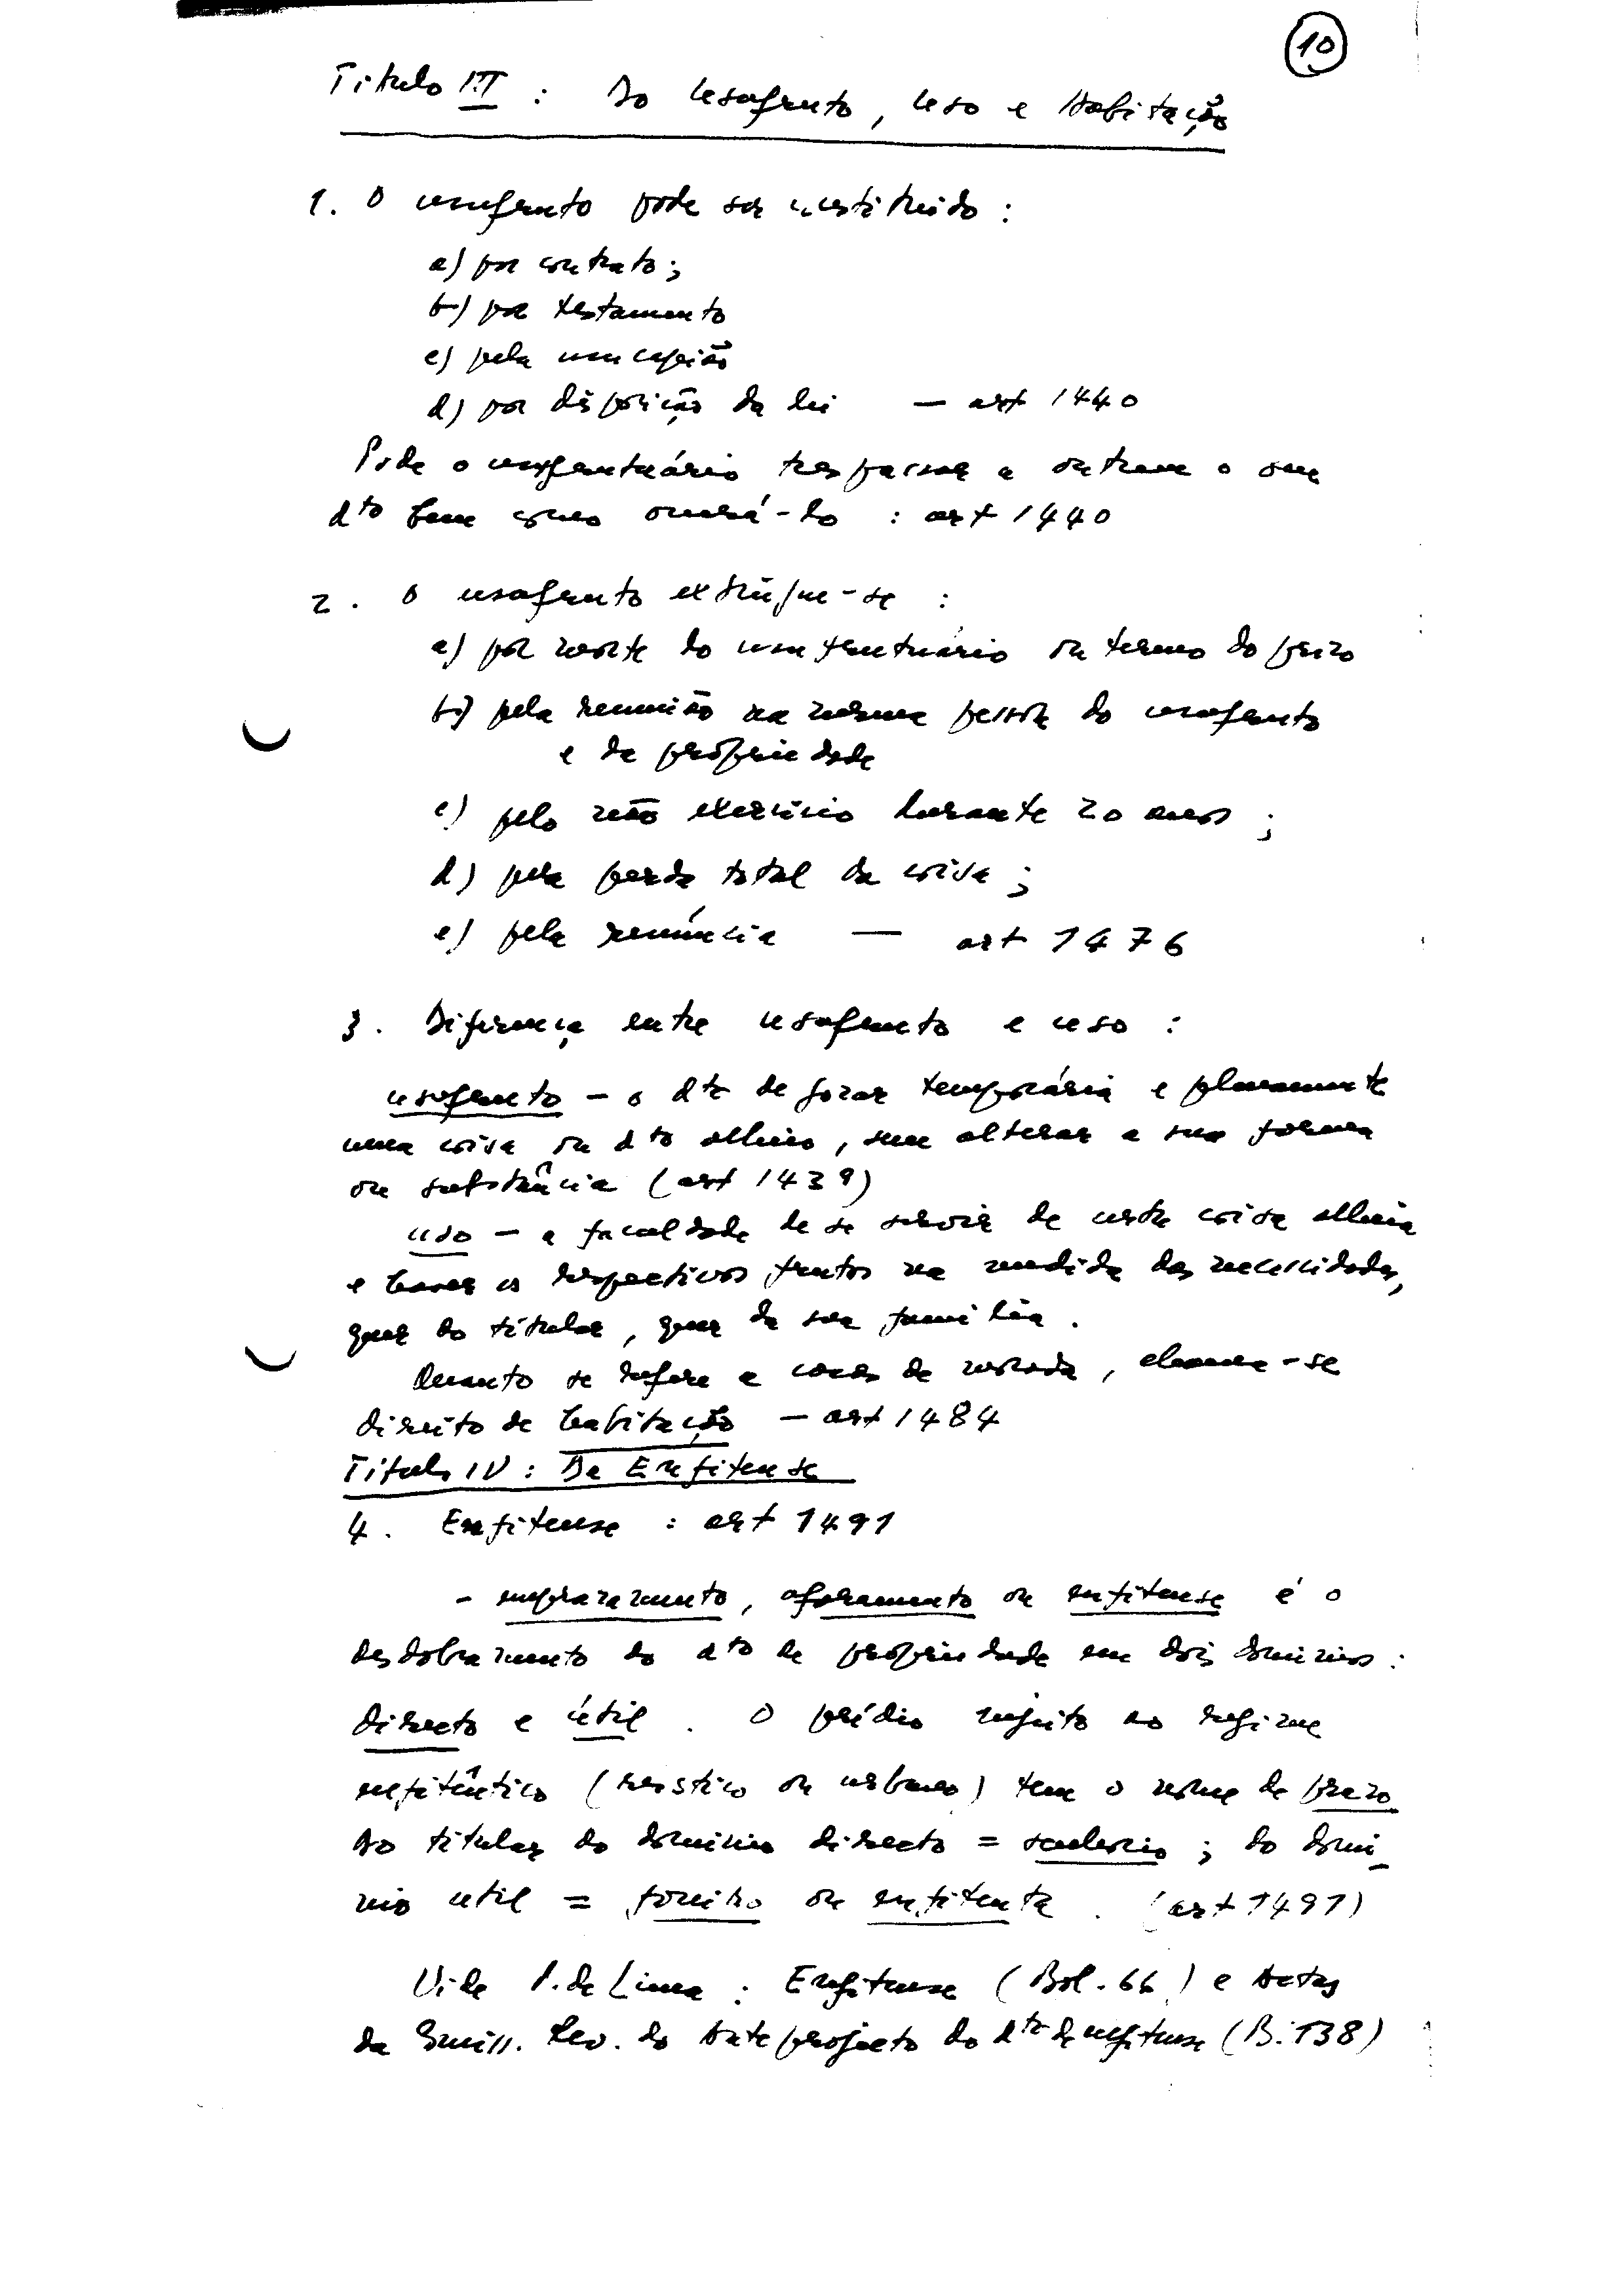 10
Titulo III : Do Usofruto, Uso e Habitação
1. O usufruto pode ser constituido :
a) por contrato;
b) por testamento
c) pela usucapião
d) por disposição da lei — art 1440
Pode o usufrutuário trespassar a outrem o seu
dto bem como onerá-lo : art 1440
2. O usofruto extingue-se :
a) por morte do usufrutuário ou termo do prazo
b) pela reunião na mesma pessoa do usofruto
e da propriedade
c) pelo não exercício durante 20 anos ;
d) pela perda total da coisa ;
e) pela renúncia — art 1476
3. Diferença entre usofruto e uso :
usofruto – o dto de gozar temporária e plenamente
uma coisa ou dto alheio, sem alterar a sua forma
ou substância (art 1439)
uso – a faculdade de se servir de certa coisa alheia
e haver os respectivos frutos na medida das necessidades,
quer do titular, quer da sua família .
Quanto se refere a casas de morada, chama-se
direito de habitação – art 1484
Titulo IV : Da Enfiteuse
4. Enfiteuse : art 1491
- emprazamento, aforamento ou enfiteuse é o
desdobramento do dto de propriedade em dois dominios :
directo e útil . O prédio sujeito ao regime
enfitêutico (rustico ou urbano) tem o nome de prazo
Ao titular do dominio directo = senhorio ; do domi-
nio util = foreiro ou enfiteuta . (art 1491)
Vide P. de Lima : Enfiteuse (Bol. 66) e Actas
da Rev. do Anteprojecto do dto de enfiteuse (B. 138)